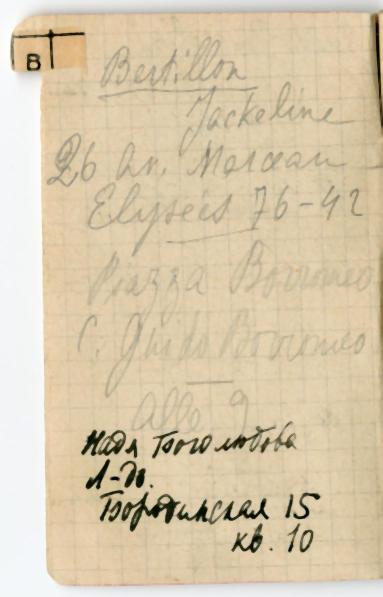 B
Bertillon
Jackeline
26 Av. Marceau
Elysées 76-42
Piazza Borromeo
C. Guido Borromeo
alle 9
Надя Боголюбова
Л-д.
Бородинская 15
кв. 10